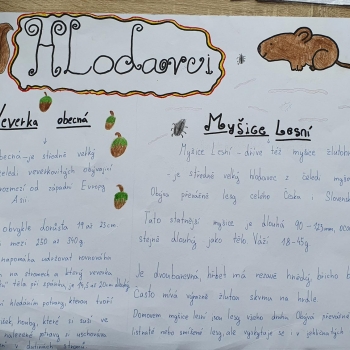 Hlodavci
Veverka obecná
obecná - je středně velký
čeledi veverkovitých obývající
rozmezí od západní Evropy
Asii
obvykle dorůstá 19 až 23cm
mezi 250 až 340g.
napomáhá udržovat rovnováhu
na stromech a bránit veverku
tělo při spánku, je 14,5 až 20cm dlouhý
hledáním potravy, kterou tvoří
houby, které si ráží ve
potravy si uschovává
v dutinách stromů
Myšice Lesní
Myšice Lesní - dříve též myšice
je středně velký hlodavec z čeledi
Obývá převážně lesy celého Česka i Slovenska
Tato statnější myšice je dlouhá 90-123mm, ocas
stejně dlouhý jako tělo. Váží 18-45g
Je dvoubarevná, hřbet má rezavě hnědý, břicho
Často mívá výrazně žlutou skvrnu na hrdle
Domovem myšice lesní jsou lesy všeho druhu. Obývá převážně
listnaté nebo smíšené lesy, ale vyskytuje se i v jehličnatých